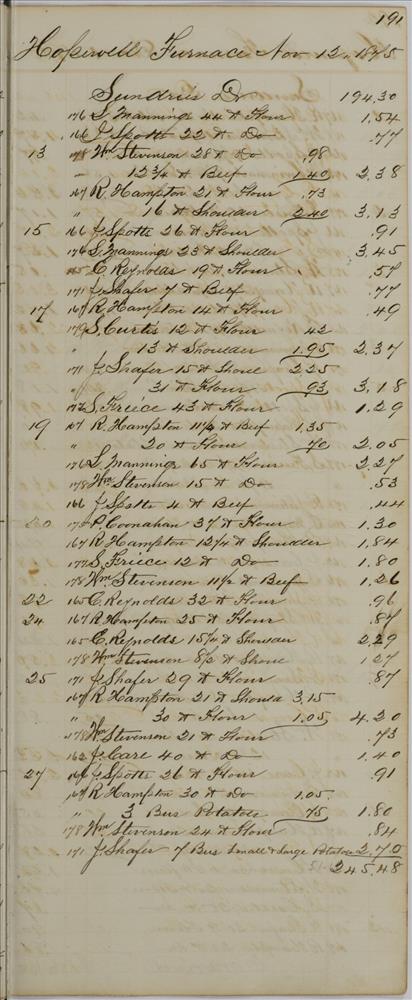 191
Hopewell Furnace Nov 12, 1875
Sundries Dr 194.30
176 S. Mannings 44 # Flour 1.54
166 J. Spotts 22 # Do .77
13 178 Wm Stevenson 28 # Do .98
" 12 3/4 # Beef 1.40 2.38
167 R. Hampton 21 # Flour .73
" 16 # Shoulder 2.40 3.13
15 166 J. Spotts 26 # Flour .91
176 S. Mannings 23 # Shoulder 3.45
165 C. Reynolds 19 # Flour .57
171 J. Shafer 7 # Beef .77
17 167 R. Hampton 14 # Flour .49
179 S. Curtis 12 # Flour 42
" 13 # Shoulder 1.95 2.37
171 J. Shafer 15 # Shoul 2.25
" 31 # Flour 93 3.18
172 S. Friece 43 # Flour 1.29
19 167 R. Hampton 11 1/4 # Beef 1.35
" 20 # Flour 70 2.05
176 S. Mannings 65 # Flour 2.27
178 Wm Stevenson 15 # Do .53
166 J. Spotts 4 # Beef .44
20 P. Coonahan 37 # Flour 1.30
167 R. Hampton 12 1/4 # Shoulder 1.84
172 S. Friece 12 # Do 1.80
178 Wm Stevenson 11 1/2 # Beef 1.26
22 165 C. Reynolds 32 # Flour .96
24 167 R. Hampton 25 # Flour .87
165 C. Reynolds 15 1/4 # Shoulder 2.29
178 Wm Stevenson 8 1/2 # Shoul 1.27
25 171 J. Shafer 29 # Flour .87
167 R. Hampton 21 # Shoulda 3.15
" 30 # Flour 1.05 4.20
178 Wm Stevenson 21 # Flour .73
162 J. Care 40 # Do 1.40
27 166 J. Spotts 26 # Flour .91
167 R. Hampton 30 # Do 1.05
" 3 Bus Potatoes 75 1.80
178 Wm. Stevenson 24 # Flour .84
171 J. Shafer 7 Bus Small & Large Potatoes 2.70
245.48